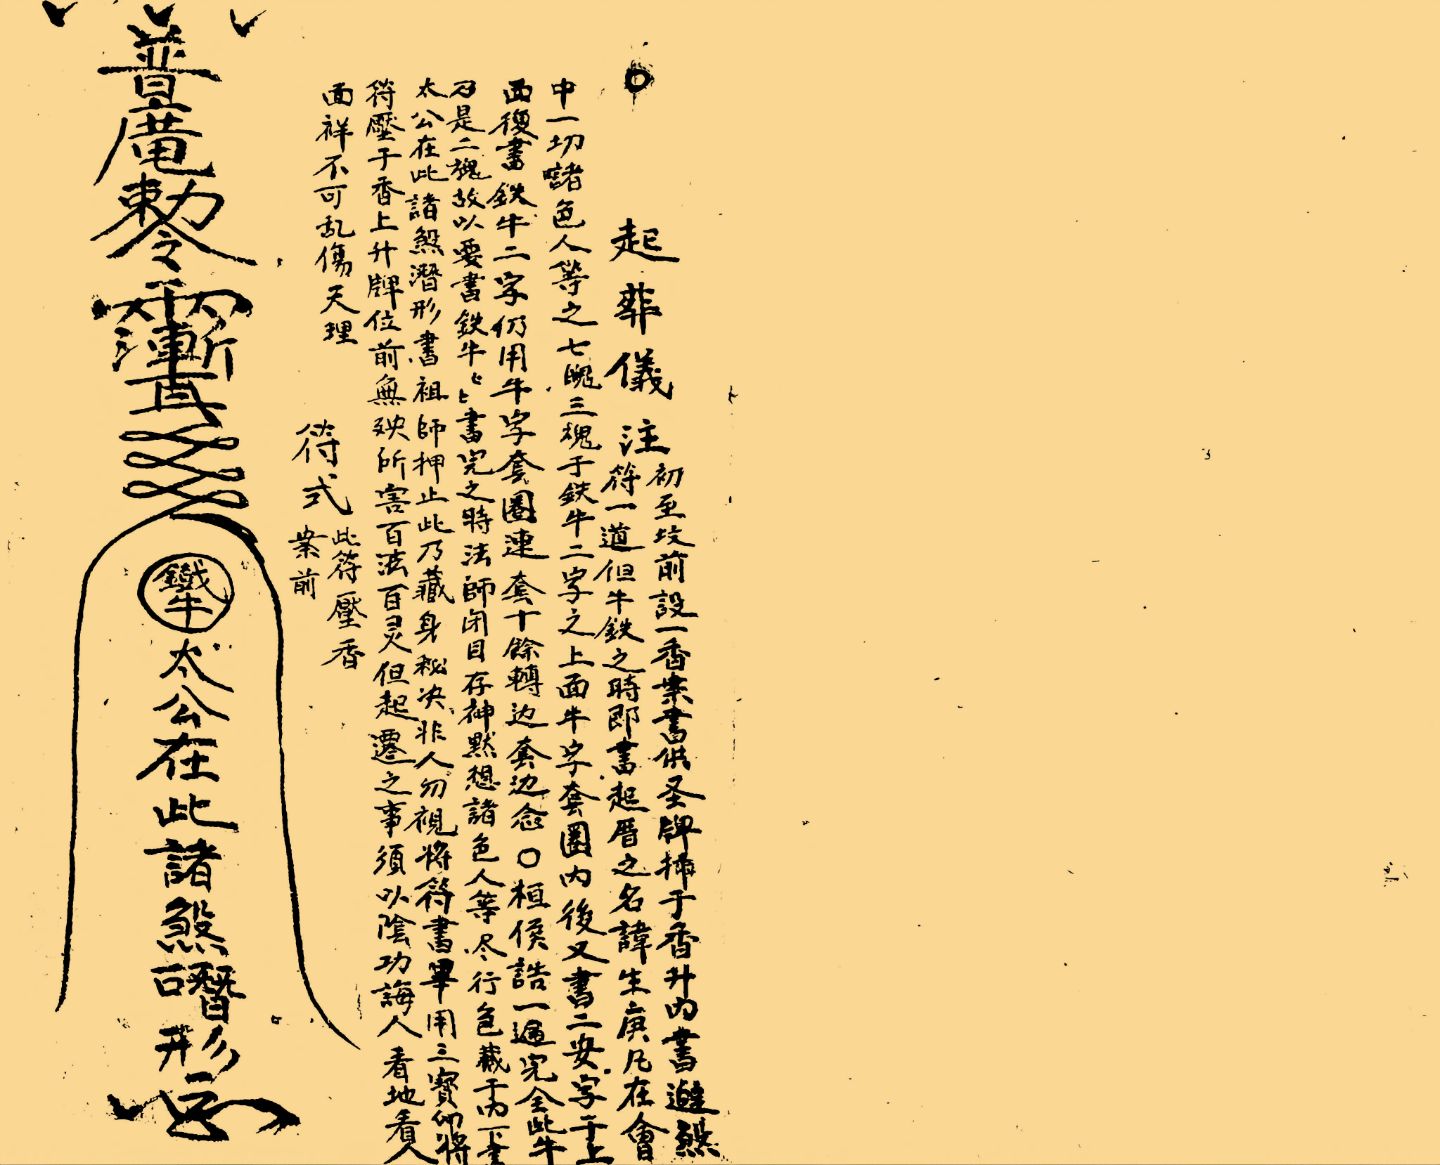 起葬儀注
初至坟前設一香案書供圣牌插于香升内書避煞
符一道但牛鉄之時即書起厝之名諱生庚凡在會
中一切諸色人等之七魄三魂于鉄牛二字之上面牛字套圈内後又書二安字于上
面復書鉄牛二字仍用牛字套圈連套十餘轉边套边念〇桓侯誥一遍完全此牛
乃是二魂故以要書鉄牛〻書完之時法師闭目存神黙想諸色人等尽行色藏于内下書
太公在此諸煞潛形書祖師押止此乃藏身秘决非人勿視将符書畢用三寳印将
符壓于香上升牌位前無殃所害百法百灵但起遷之事須以陰功誨人看地看人
面祥不可乱傷天理
符式
此符壓香
案前
普庵勅令
鐵牛
太公在此諸煞潛形